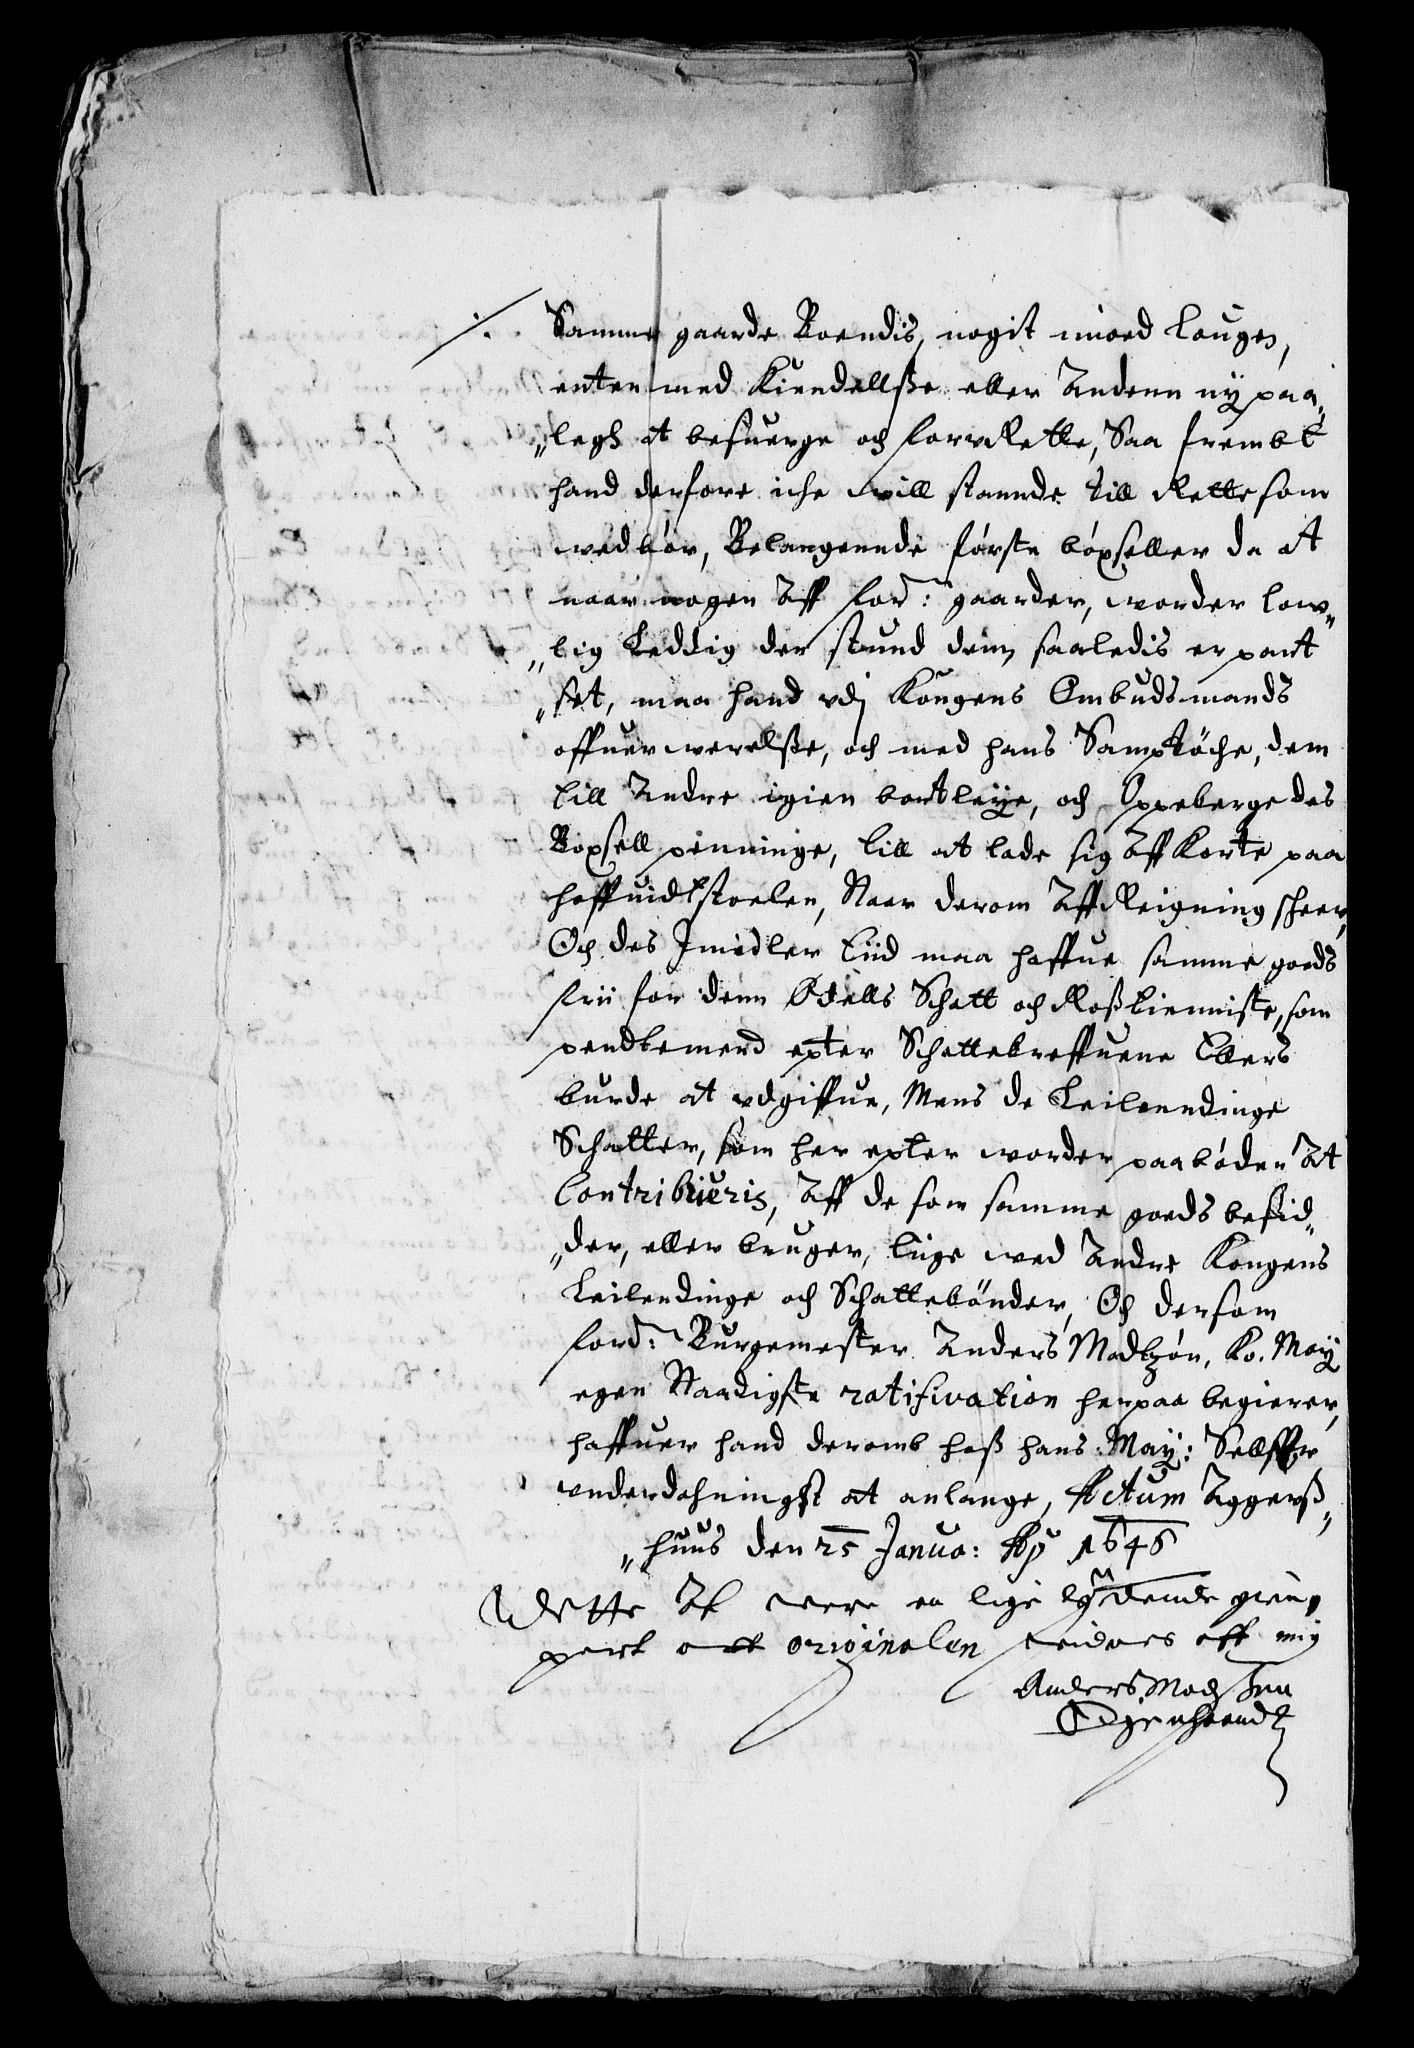 Samme gaarde Boendis, nogit imoed lougen,
enten med Kiendellsse eller Andenn ny paa„
„legh at besuerge och forrRette, Saa frembt
hand derfore iche will stannde till Rette som
wedbör, Belangennde förste böxseller da at
naar nogen Aff ford: gaarder, worder low„
„lig Leddig der stund dem saaledis er pant
„set, maa hand vdj Kongens Ombudsmands
offuerwerelsse, och med hans Samptöche, dem
till Andre igien bortleye, och Oppeberge des
Boxsell penninge, till at lade sig Aff Korte paa
hoffuidstoelen, Naar derom AffReigning scheer,
Och des Jmidler tiid maa haffue samme goeds
frii for denn Odells Schatt och Rosstienniste, som
pandtemend epter Schattebreffuene Ellers
burde at vdgiffue, Mens de Leilenndinge
Schatter, som her epter worder paabøden At
Contribueris, Aff de som samme goeds besid„
„der, eller bruger, liige wed Andre Kongens
Leilendinge och Schattebönder, Och dersom
ford: Burgemester Anders Madtzön, Ko. May
egen Naadigste ratification herpaa begierer,
haffuer hand deromb hoss hans May: Sellffr
vnderdahningst at anlange, Actum Aggerss„
„huus den 25 Janua: Ao 1646
Dette At were en lige lydende
part aff originalen widnes aff mig
Anders Madssen
Egenhaandt